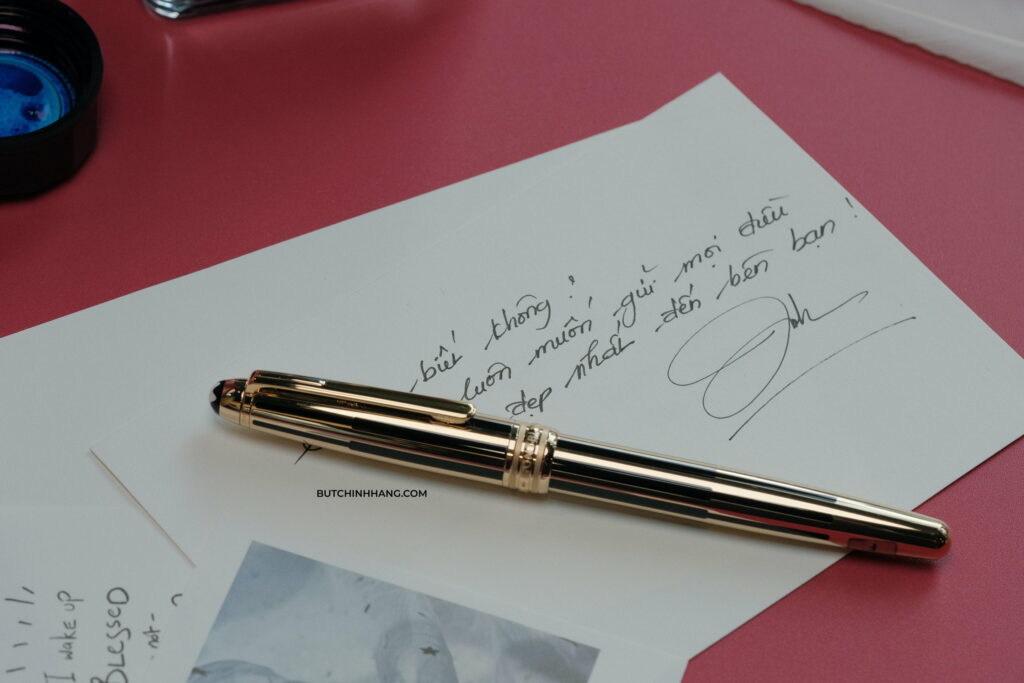 biết không !
luôn muốn gửi mọi điều
đẹp nhất đến bên bạn !
BUTCHINHHANG.COM
I wake up
BLESSED
-not-